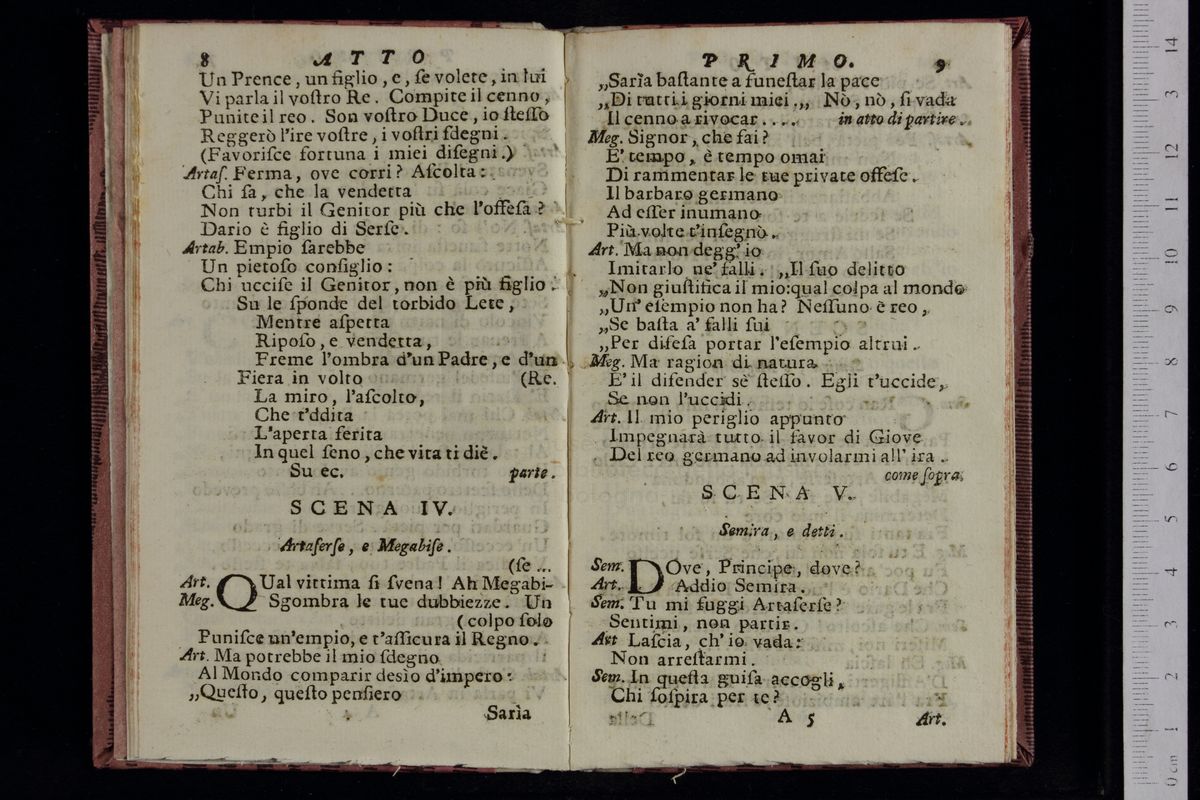 8 ATTO
Un Prence, un figlio, e, ſe volete, in lui
Vi parla il voſtro Re. Compite il cenno,
Punite il reo. Son voſtro Duce, io ſteſſo
Reggerò l'ire voſtre, i voſtri ſdegni.
(Favoriſce fortuna i miei diſegni.)
Artaſ. Ferma, ove corri? Aſcolta:
Chi ſa, che la vendetta
Non turbi il Genitor più che l'offeſa?
Dario è figlio di Serſe.
Artab. Empio ſarebbe
Un pietoſo conſiglio:
Chi ucciſe il Genitor, non è più figlio.
Su le ſponde del torbido Lete,
Mentre aſpetta
Ripoſo, e vendetta,
Freme l'ombra d'un Padre, e d'un
Fiera in volto (Re.
La miro, l'aſcolto,
Che t'ddita
L'aperta ferita
In quel ſeno, che vita ti diè.
Su ec. parte.
SCENA IV.
Artaſerſe, e Megabiſe.
(ſe ...
Art. QUal vittima ſi ſvena! Ah Megabi-
Meg. Sgombra le tue dubbiezze. Un
(colpo ſolo
Puniſce un'empio, e t'aſſicura il Regno.
Art. Ma potrebbe il mio ſdegno
Al Mondo comparir desìo d'impero:
„Queſto, queſto penſiero
Sarìa
PRIMO. 9
„Sarìa baſtante a funeſtar la pace
„Di tutti i giorni miei.„ Nò, nò, ſi vada
Il cenno a rivocar.... in atto di partire.
Meg. Signor, che fai?
E' tempo, è tempo omai
Di rammentar le tue private offeſe.
Il barbaro germano
Ad eſſer inumano
Più volte t'inſegnò.
Art. Ma non degg' io
Imitarlo ne' falli. „Il ſuo delitto
„Non giuſtifica il mio: qual colpa al mondo
„Un' eſempio non ha? Neſſuno è reo,
„Se baſta a' falli ſui
„Per difeſa portar l'eſempio altrui.
Meg. Ma ragion di natura
E' il difender sè ſteſſo. Egli t'uccide,
Se non l'uccidi.
Art. Il mio periglio appunto
Impegnarà tutto il favor di Giove
Del reo germano ad involarmi all' ira.
come ſopra.
SCENA V.
Semira, e detti.
Sem. DOve, Principe, dove?
Art. Addio Semira.
Sem. Tu mi fuggi Artaſerſe?
Sentimi, non partir.
Art Laſcia, ch' io vada:
Non arreſtarmi.
Sem. In queſta guiſa accogli,
Chi ſoſpira per te?
A 5 Art.
14
13
12
11
10
9
8
7
6
5
4
3
2
1
0 cm